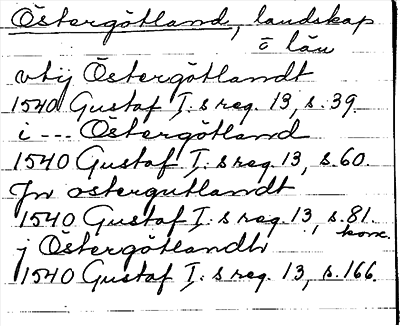 Östergötland, landskap
o län
vtij Östergötlandt
1540 Gustaf I:s reg. 13, s. 39.
i --- Östergötland
1540 Gustaf I:s reg. 13, s. 60.
Jn ostergutlandt
1540 Gustaf I:s reg. 13, s. 81.
konc.
j Östergötlandh
1540 Gustaf I:s reg. 13, s. 166.